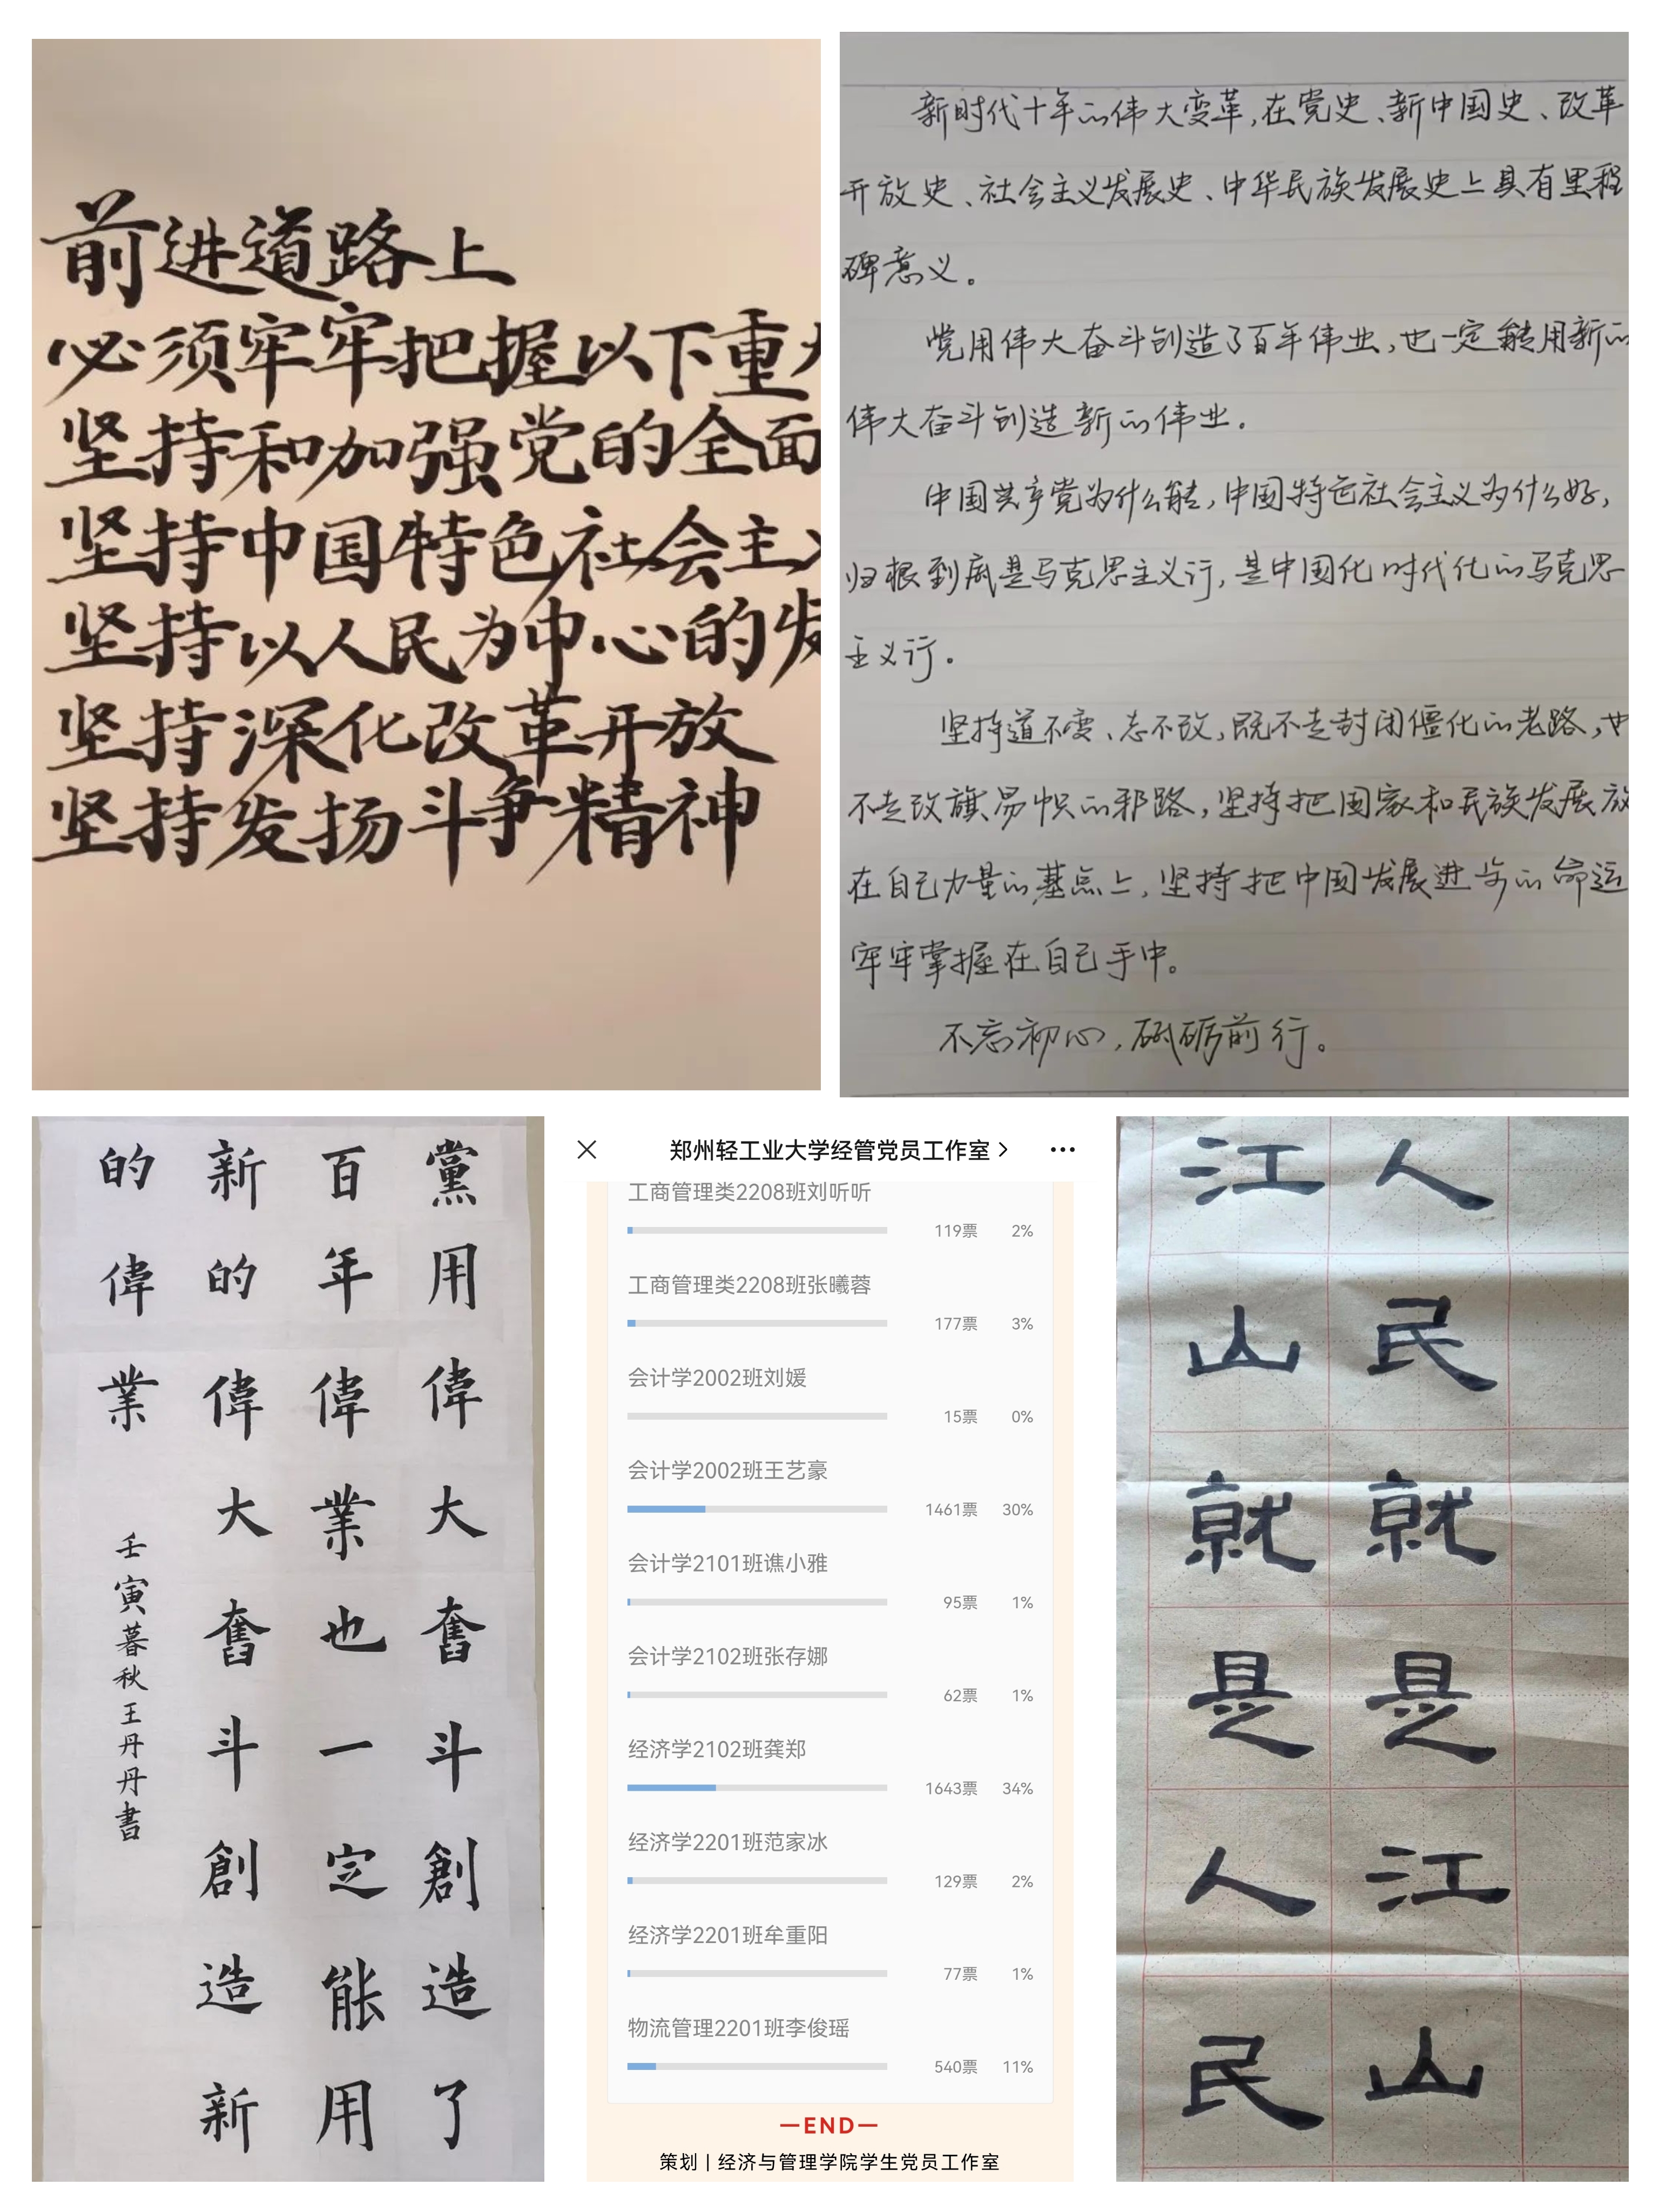 前进道路上
必须牢牢把握以下重大
坚持和加强党的全面
坚持中国特色社会主义
坚持以人民为中心的发
坚持深化改革开放
坚持发扬斗争精神
新时代十年的伟大变革,在党史、新中国史、改革
开放史、社会主义发展史、中华民族发展史上具有里程
碑意义。
党用伟大奋斗创造了百年伟业,也一定能用新的
伟大奋斗创造新的伟业.
中国共产党为什么能,中国特色社会主义为什么好,
归根到底是马克思主义行,是中国化时代化的马克思
主义行.
坚持道不变、志不改,既不走封闭僵化的老路,也
不走改旗易帜的邪路,坚持把国家和民族发展放
在自己力量的基点上,坚持把中国发展进步的命运
牢牢掌握在自己手中。
不忘初心,砥砺前行。
黨用偉大奮斗創造了
百年偉業也一定能用
新的偉大奮斗創造新
的偉業
壬寅暮秋王丹丹書
郑州轻工业大学经管党员工作室
工商管理类2208班刘听听
119票 2%
工商管理类2208班张曦蓉
177票 3%
会计学2002班刘媛
15票 0%
会计学2002班王艺豪
1461票 30%
会计学2101班谯小雅
95票 1%
会计学2102班张存娜
62票 1%
经济学2102班龚郑
1643票 34%
经济学2201班范家冰
129票 2%
经济学2201班牟重阳
77票 1%
物流管理2201班李俊瑶
540票 11%
—END—
策划 | 经济与管理学院学生党员工作室
人民就是江山
江山就是人民